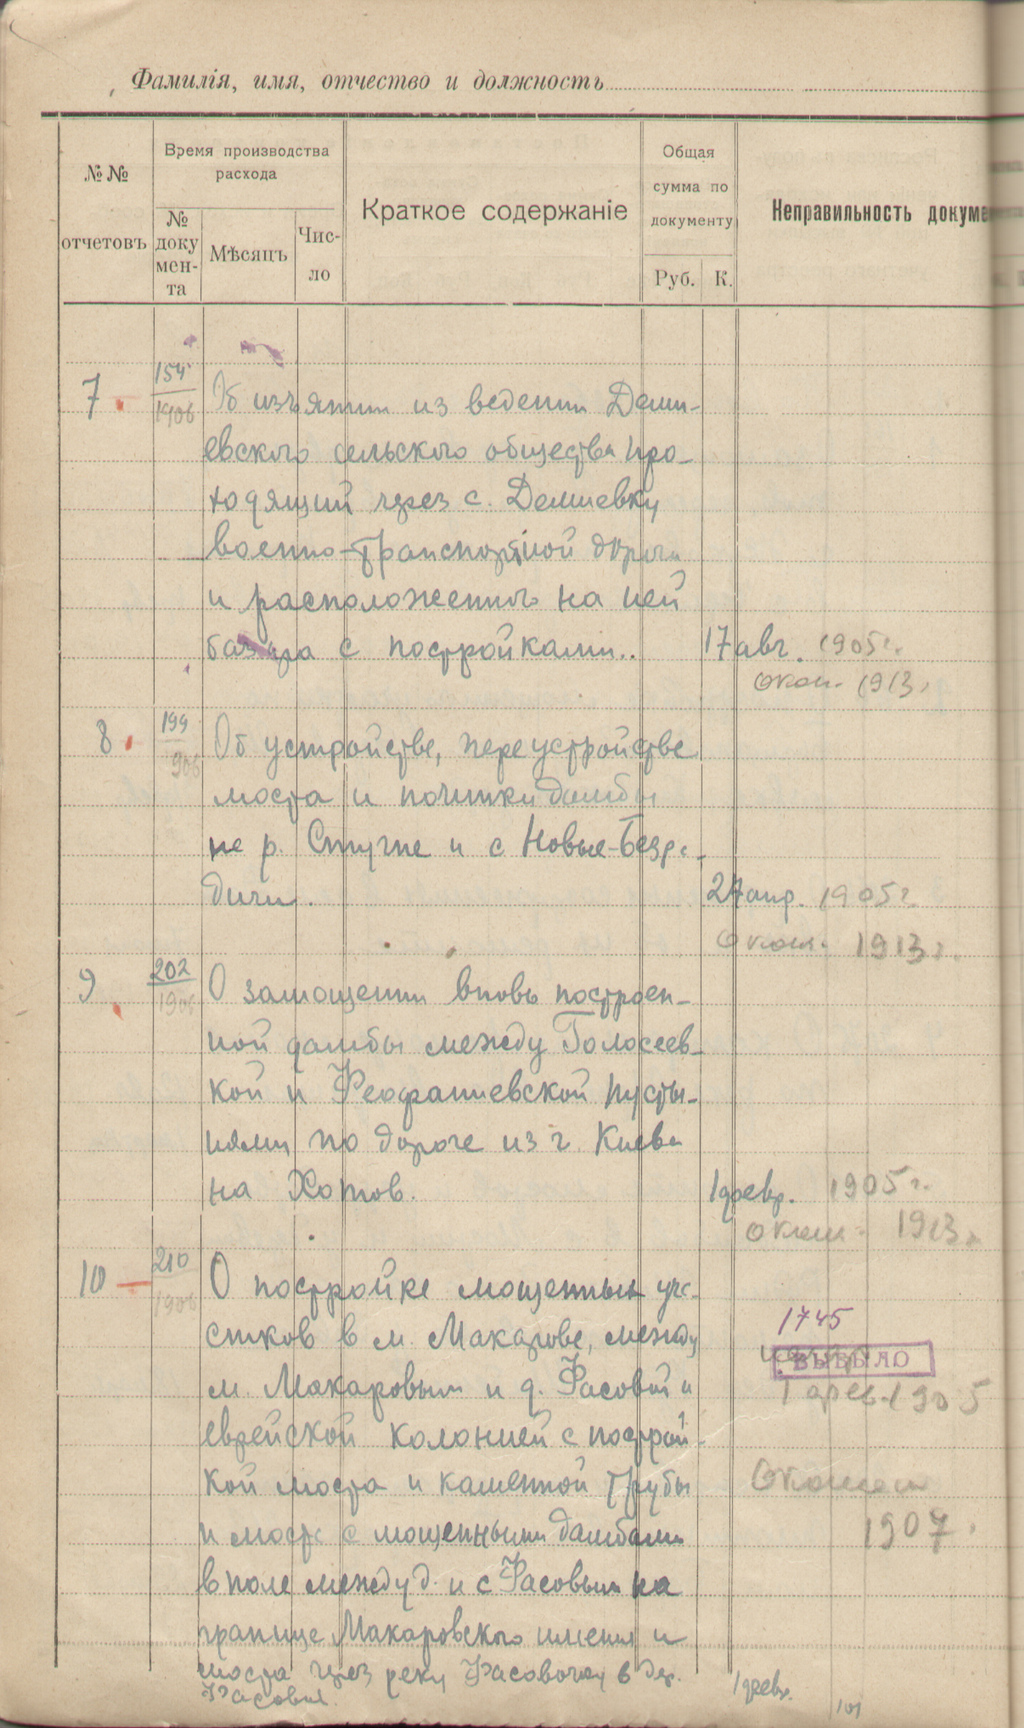 Фамилія, имя, отчество и должность
№№ отчетовъ
Время производства расхода
№ доку мен- та
Мѣсяцъ
Чис- ло
Краткое содержаніе
Общая сумма по документу
Руб. К.
Неправильность докуме
7. 154 1906
Об изъятии из ведении Деми-
евского сельского общества про-
ходящий через с. Демиевку
военно-транспортной дороги
и расположенного на ней
базара с постройками..
17 авг. 1905 г.
Окон. 1913 г.
8. 199 906
Об устройстве, переустройстве
моста и починки дамбы
на р. Стугне и с Новые-Безра-
дичи.
27 апр. 1905 г.
Окон. 1913 г.
9. 202 1906
О замощении вновь построен-
ной дамбы между Голосеев-
кой и Феофаниевской пусты-
нями по дороге из г. Киева
на Хотов.
1 февр. 1905 г.
Окон. 1913 г.
10 210 1906
О постройке мощенных уча-
стков в м. Макарове, между
м. Макаровым и д. Фасовой и
еврейской колонией с построй-
кой моста и каменной трубы
и моста с мощенными дамбами
в поле между д. и с Фасовым на
границе Макаровского имения и
моста через реку Фасовочку в дер.
Фасовой.
1745
ВЫБЫЛО
1 фев. 1905
Окончен
1907.
1 февр.
101